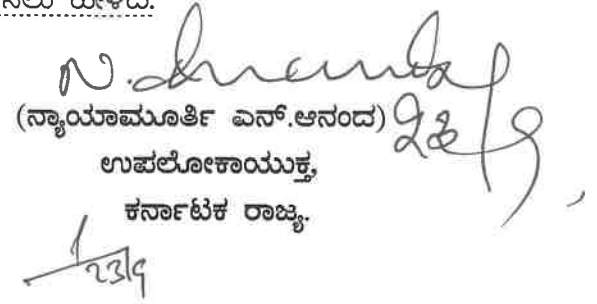 ಹೇಳಿದೆ.
N. Ananda
(ನ್ಯಾಯಾಮೂರ್ತಿ ಎನ್.ಆನಂದ) 23/9
ಉಪಲೋಕಾಯುಕ್ತ,
ಕರ್ನಾಟಕ ರಾಜ್ಯ.
23/9